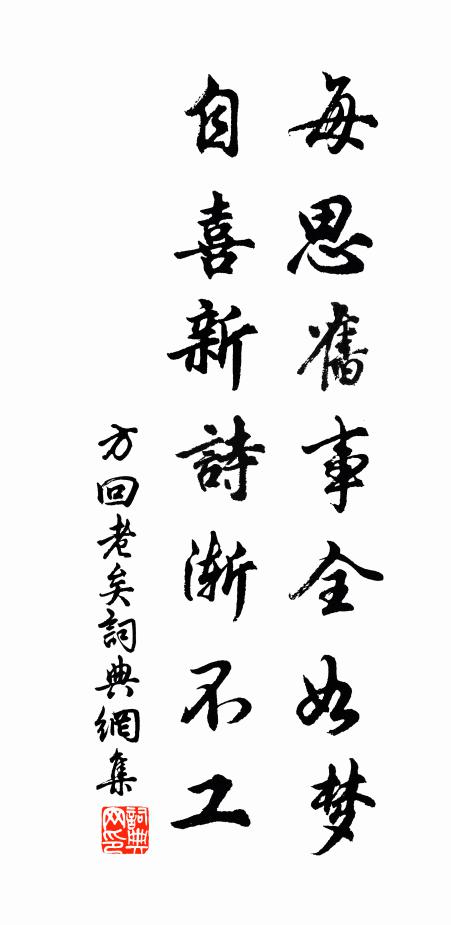 每思舊事全如梦
自喜新詩渐不工
方回老矣詞典網集
詞典網印